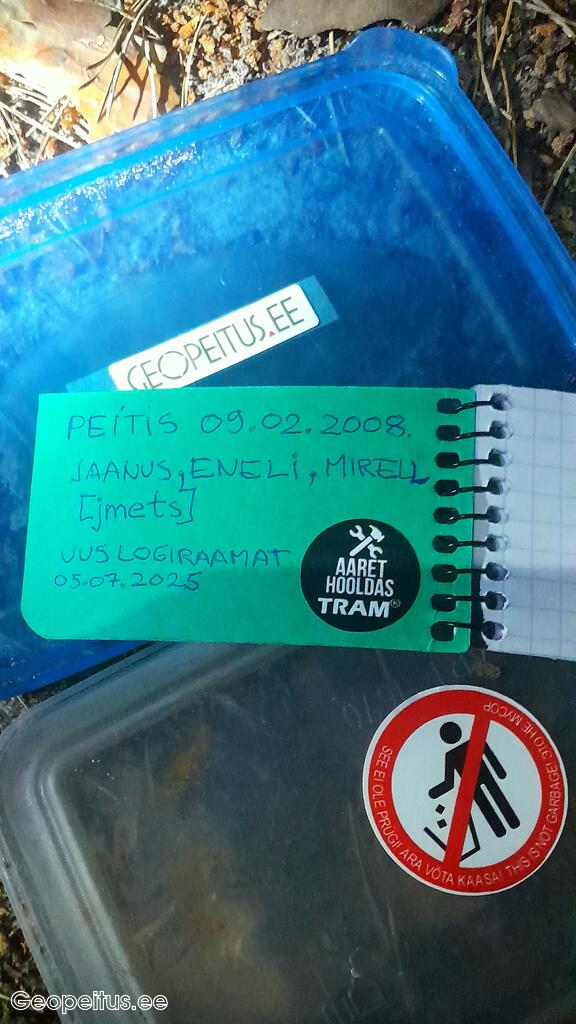 GEOPEITUS.EE
PEITIS 09.02.2008.
JAANUS, ENELI, MIRELL
[jmets]
UUS LOGIRAAMAT
05.07.2025
AARET
HOOLDAS
TRAM
SEE EI OLE PRÜGI! ÄRA VÕTA KAASA! THIS IS NOT GARBAGE! ЭТО НЕ МУСОР
Geopeitus.ee